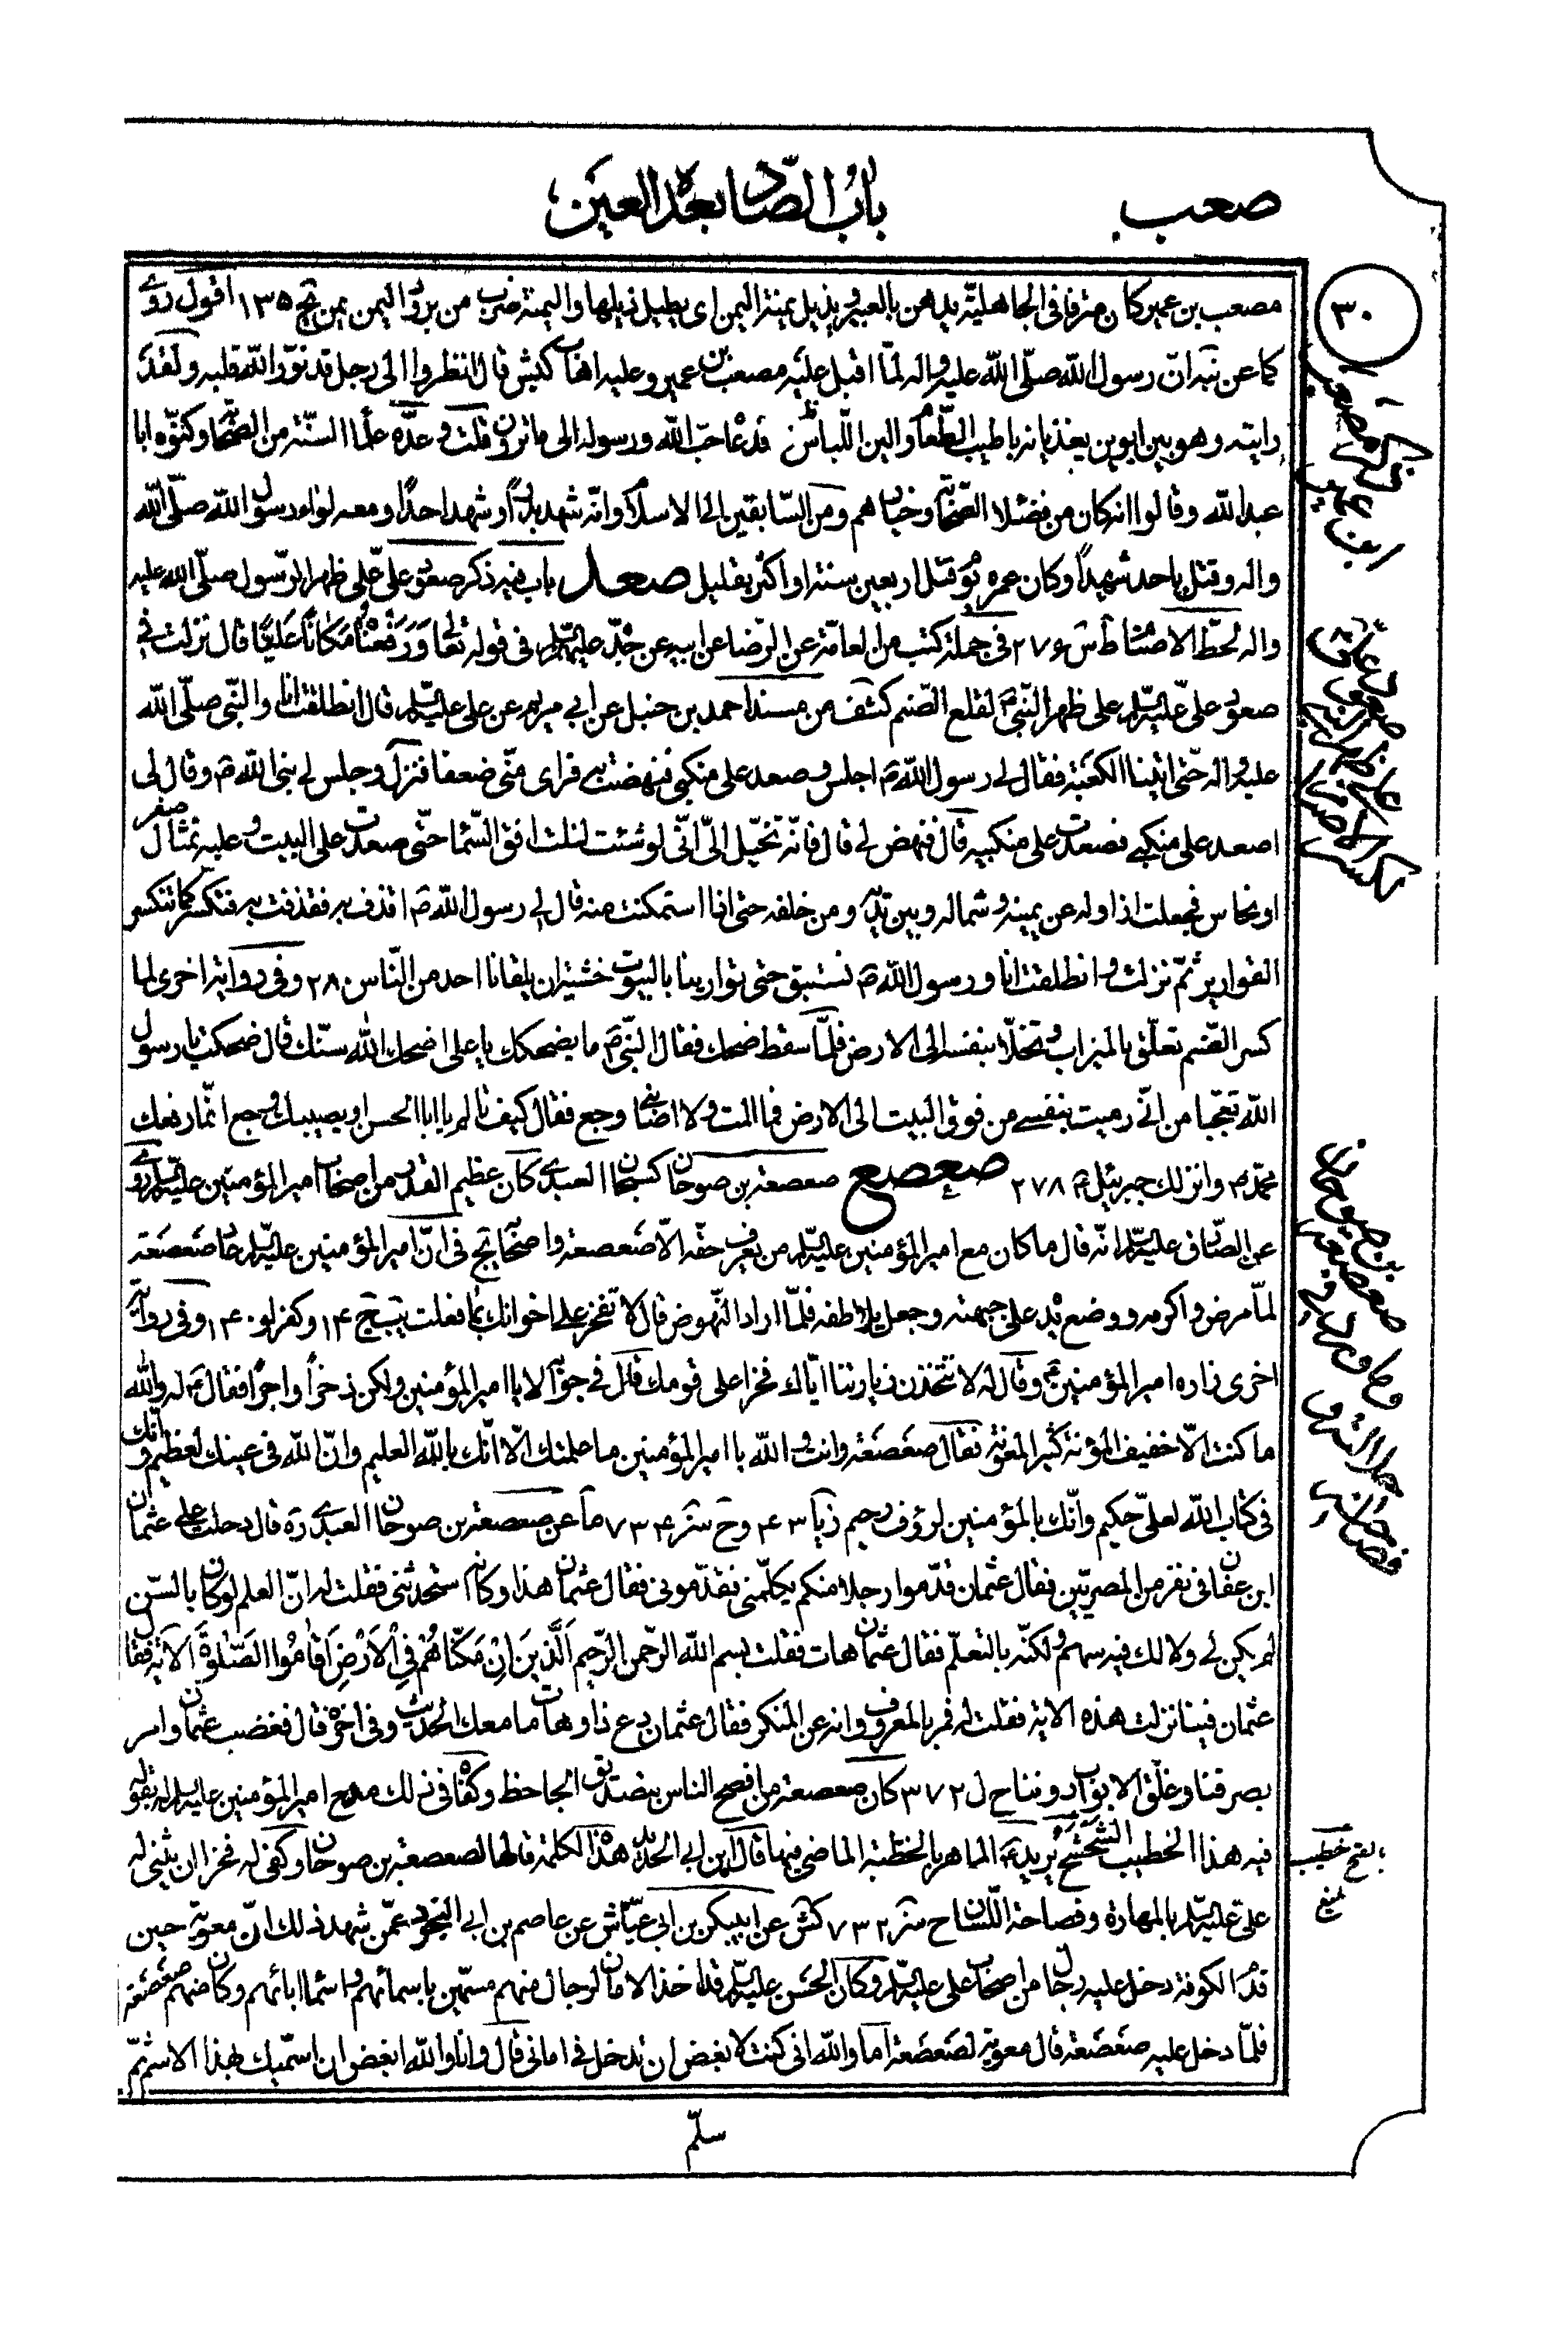 صعب
باب الصّاد بعده العين
٣٠
مصعب بن عمير كان مترفا في الجاهليّة يدهن بالعبير ويذيل يمنة اليمن اى يطيل ذيلها واليمنة ضرب من برود اليمن يمن ١٣٥ اقول روى
كا عن نبه انّ رسول اللّه صلّى اللّه عليه واله لمّا اقبل عليه مصعب بن عمير وعليه اهاب كبش قال انظروا الى رجل قد نوّر اللّه قلبه ولقد
رايته وهو بين ابوين يغذيانه باطيب الطّعام والين اللّباس فدعاه حبّ اللّه ورسوله الى ما ترون قلت وعدّه علماء السنّة من الصّحابة وكنّوه ابا
عبد اللّه وقالوا انه كان من فضلاء الصّحابة وخيارهم ومن السّابقين الى الاسلام وانّه شهد بدرا وشهد احدا ومعه لواء رسول اللّه صلّى اللّه
واله وقتل باحد شهيدا وكان عمره يوم قتل اربعين سنة او اكثر بقليل صعد باب فيه ذكر صعود علىّ على ظهر الرّسول صلّى اللّه عليه
واله لحطّ الاصنام ط ش ٢٧٦ في جملة كتب من العامّة عن الرّضا عن ابيه عن جدّه عليهم السّلم في قوله تعالى وَرَفَعْنٰاهُ مَكٰانًا عَلِيًّا قال نزلت في
صعود علىّ عليه السّلم على ظهر النّبىّ لقلع الصّنم كشف من مسند احمد بن حنبل عن ابي مريم عن على عليه السّلم قال انطلقت انا والنّبى صلّى اللّه
عليه واله حتّى اتينا الكعبة فقال لى رسول اللّه ص اجلس وصعد على منكبى فنهضت به فراى منّى ضعفا فنزل وجلس لى نبى اللّه ص وقال لى
اصعد على منكبى فصعدت على منكبيه قال فنهض لى قال فانّه تخيّل الىّ انّى لو شئت لنلت افق السّماء حتّى صعدت على البيت وعليه تمثال صفر
او نحاس فجعلت ازاوله عن يمينه وشماله وبين يديه ومن خلفه حتى اذا استمكنت منه قال لى رسول اللّه ص اقذف به فقذفت به فتكسّر كما تنكسر
القوارير ثمّ نزلت وانطلقت انا ورسول اللّه ص نستبق حتى توارينا بالبيوت خشية ان يلقانا احد من النّاس ٢٨٠ وفي رواية اخرى لما
كسر الصّنم تعلّق بالميزاب وتخلّا بنفسه الى الارض فلمّا سقط ضحك فقال النّبىّ ص ما يضحكك يا على اضحك اللّه سنّك قال ضحكت يا رسول
اللّه تعجّبا من انّى رميت بنفسى من فوق البيت الى الارض فما المت ولا اصابنى وجع فقال كيف تالم يا ابا الحسن او يصيبك وجع انّما رفعك
محمّد ص وانزلك جبرئيل ٢٧٨ صعصع صعصعة بن صوحان كسبحان العبدى كان عظيم القدر من اصحاب امير المؤمنين عليه السّلم روى
عن الصّادق عليه السّلم انّه قال ما كان مع امير المؤمنين عليه السّلم من يعرف حقّه الّا صَعصعة واصحابه في انّ امير المؤمنين عليه السّلم عاد صَعصَعة
لمّا مرض واكرمه ووضع يده على جبهته وجعل يلاطفه فلمّا اراد النّهوض قال لا تفخر على اخوانك بما فعلت ١٤ وكفر لو ١٤٠ وفي رواية
اخرى زاره امير المؤمنين وقال له لا تتّخذن زيارتنا ايّاك فخرا على قومك قال في جوابه لا يا امير المؤمنين ولكن ذخرًا واجرًا فقال له واللّه
ما كنت الّا خفيف المؤنة كثير المعونة فقال صَعصَعة وانت واللّه يا امير المؤمنين ما علمتك الّا انّك باللّه العليم وانّ اللّه في عينك لعظيم وانّك
في كتاب اللّه لعلىّ حكيم وانّك بالمؤمنين لرؤف رحيم ٤٣ وح ٧٣٤ ما عن صعصعة بن صوحان العبدى ره قال دخلت على عثمان
ابن عفان في نفر من المصريّين فقال عثمان قدّموا رجلا منكم يكلّمنى فقدّمونى فقال عثمان هذا وكانّه استحدثنى فقلت له انّ العلم لو كان بالسّن
لم يكن لى ولا لك فيه سهم ولكنّه بالتعلّم فقال عثمان هات فقلت بسم اللّه الرّحمن الرّحيم اَلَّذِينَ اِنْ مَكَّنّٰاهُمْ فِي الْاَرْضِ اَقٰامُوا الصَّلٰوةَ الاية فقال
عثمان فينا نزلت هذه الاية فقلت له فمر بالمعروف وانه عن المنكر فقال عثمان دع ذا وهات ما معك الحديث وفي اخره قال فغضب عثمان وامر
بصرفنا وغلّق الابواب دوننا ح ل ٣٧٢ كان صعصعة من افصح الناس بتصديق الجاحظ وكفاه في ذلك مدح امير المؤمنين عليه السّلم له بقوله
فيه هذا الخطيب الشَّحْشَح يريد الماهر بالخطبة الماضي فيها قال ابن ابى الحديد هذه الكلمة قالها لصعصعة بن صوحان وكفى له فخرا ان يثنى له
علىّ عليه السّلم بالمهارة وفصاحة اللّسان ح ٧٣٢ كش عن ابى بكر بن ابى عيّاش عن عاصم بن ابى النّجود عمّن شهد ذلك انّ معوية حين
قدم الكوفة دخل عليه رجال من اصحاب على عليه السّلم وكان الحسن عليه السّلم قد اخذ الامان لرجال منهم مسمّين باسمائهم واسماء ابائهم وكان منهم صعصعة
فلمّا دخل عليه صَعصَعة قال معوية لصَعصَعة اما واللّه انى كنت لابغض ان تدخل في امانى قال وانا واللّه ابغض ان اسمّيك بهذا الاسم ثمّ
سلّم
ذكر مصعب
ابن عمير
صعود علىّ
على ظهر النبى
لكسر الاصنام
صعصعة بن صوحان
وما ورد في
فصاحته
بفتح خطيب
بليغ